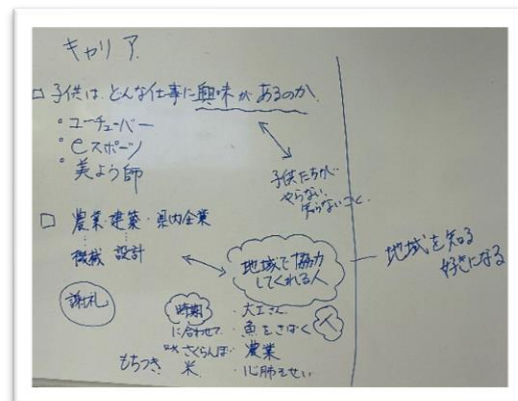 キャリア
□ 子供は、どんな仕事に興味があるのか
・ユーチューバー
・eスポーツ
・美よう師
子供たちが
やらない、
知らないこと
□ 農業・建築・県内企業
機械 設計
地域で協力
してくれる人
地域を知る
好きになる
謝礼
時期
に合わせて
さくらんぼ
もちつき 米
・大工さん
・魚をさばく
農業
・心肺そせい